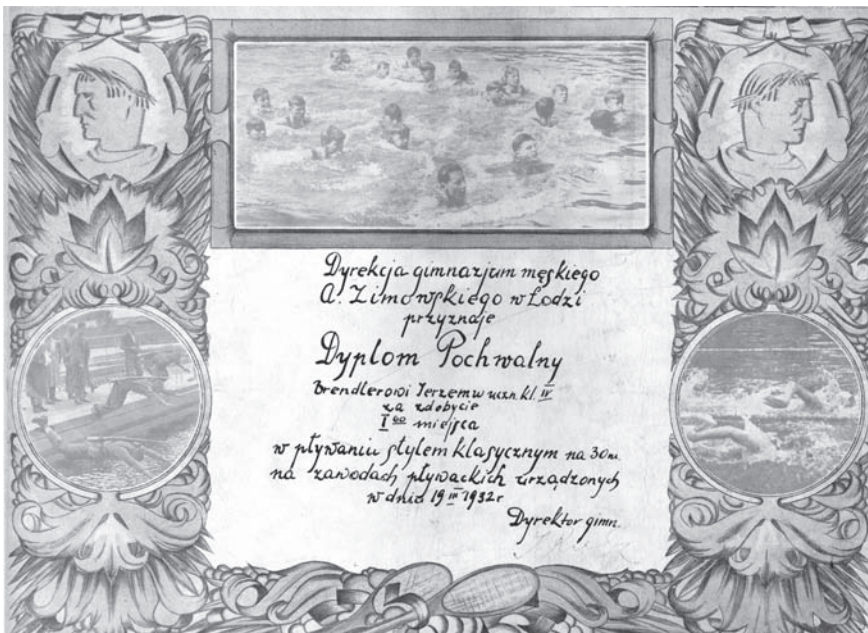 Dyrekcja gimnazjum męskiego
A. Zimowskiego w Łodzi
przyznaje
Dyplom Pochwalny
Brendlerowi Jerzemu uczn. kl. IV
za zdobycie
I go miejsca
w pływaniu stylem klasycznym na 30 m.
na zawodach pływackich urządzonych
w dniu 19 III 1932 r
Dyrektor gimn.